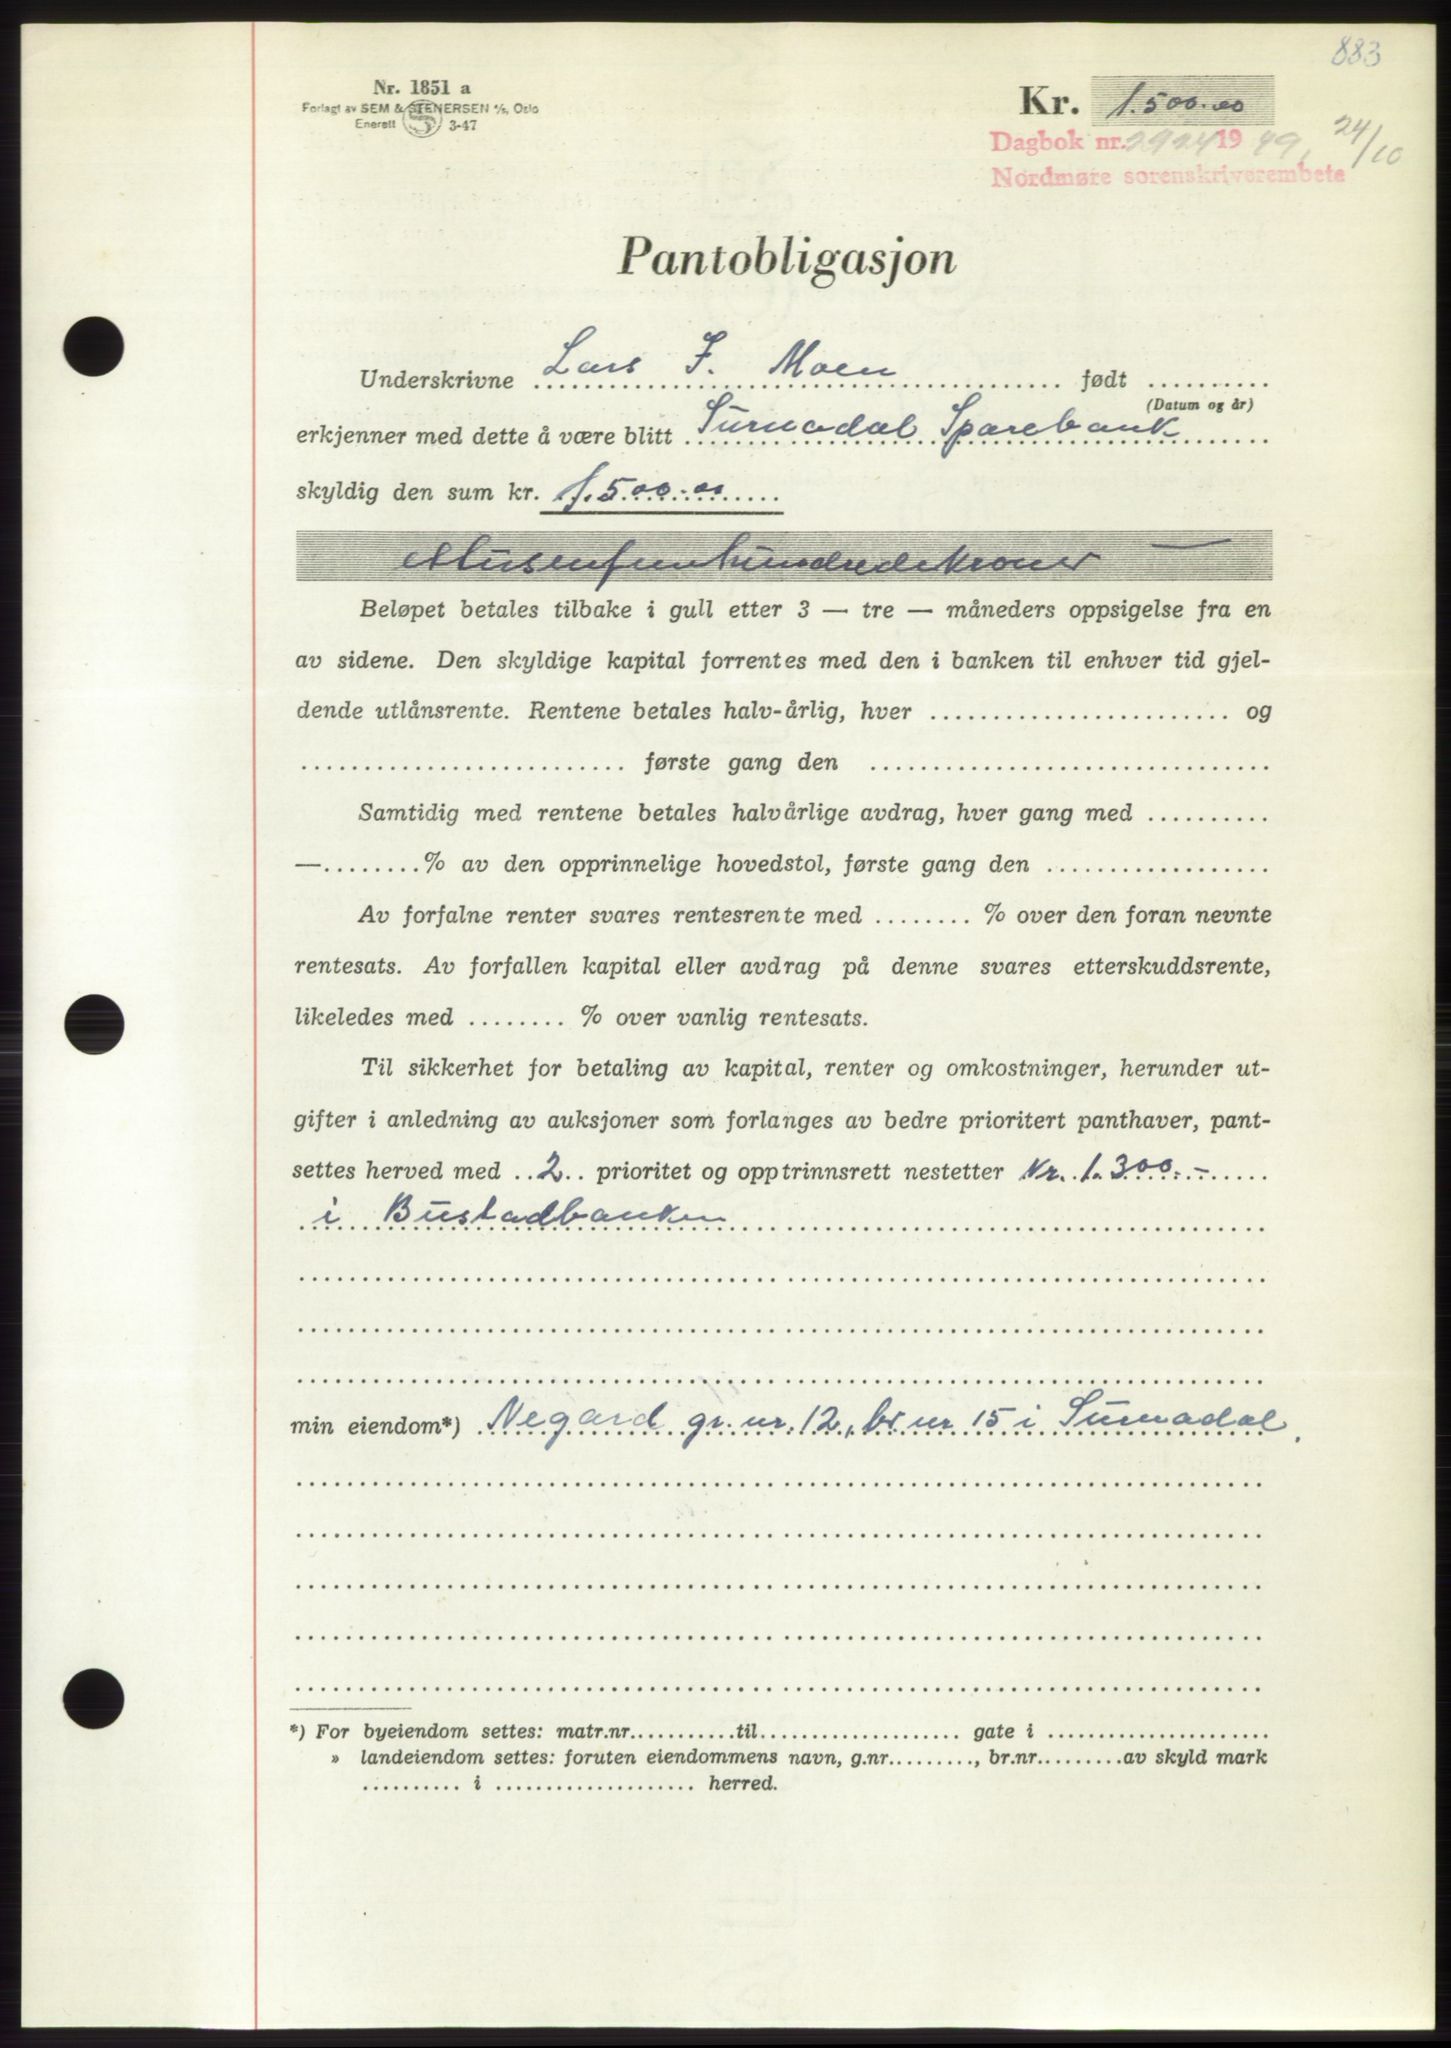 883
Nr. 1851 a
Forlagt av SEM & STENERSEN A/S, Oslo
Enerett 3-47
Kr. 1.500.00
Dagbok nr. 2924 1949, 24/10
Nordmøre sorenskriverembete
Pantobligasjon
Underskrivne Lars F. Moen født ..........
(Datum og år)
erkjenner med dette å være blitt Surnadal Sparebank
skyldig den sum kr. 1.500.00
Ettusenfemhundredekroner —
Beløpet betales tilbake i gull etter 3 — tre — måneders oppsigelse fra en
av sidene. Den skyldige kapital forrentes med den i banken til enhver tid gjel-
dende utlånsrente. Rentene betales halv-årlig, hver ........................ og
.......................... første gang den ................................
Samtidig med rentene betales halvårlige avdrag, hver gang med ..........
—........% av den opprinnelige hovedstol, første gang den ..................
Av forfalne renter svares rentesrente med ........ % over den foran nevnte
rentesats. Av forfallen kapital eller avdrag på denne svares etterskuddsrente,
likeledes med ........ % over vanlig rentesats.
Til sikkerhet for betaling av kapital, renter og omkostninger, herunder ut-
gifter i anledning av auksjoner som forlanges av bedre prioritert panthaver, pant-
settes herved med ..2.. prioritet og opptrinnsrett nestetter Kr. 1.300.-
i Bustadbanken
min eiendom*) Negard gr.nr. 12, br.nr 15 i Surnadal.
*) For byeiendom settes: matr.nr...........til.................... gate i ......................
» landeiendom settes: foruten eiendommens navn, g.nr........., br.nr.........av skyld mark
.......... i .................... herred.